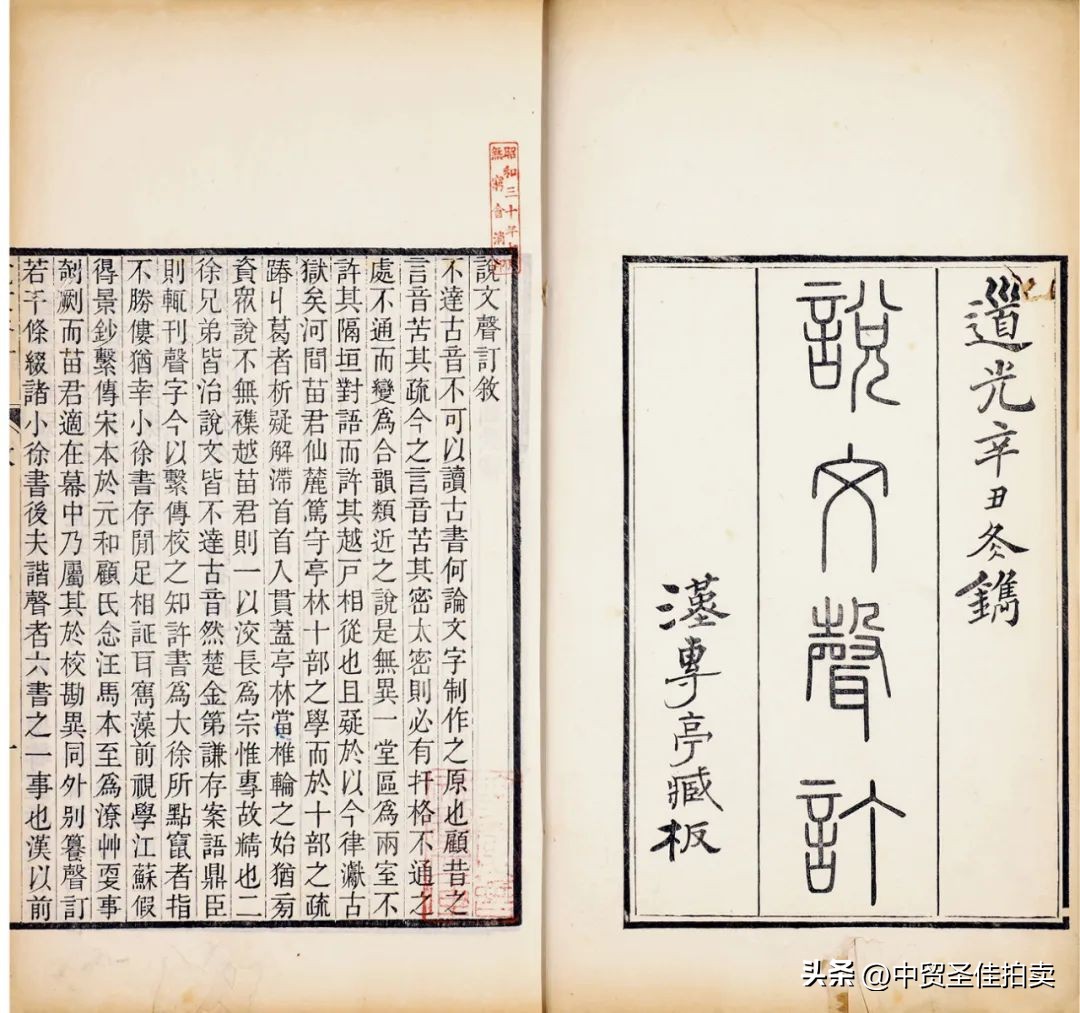 道光辛丑冬鐫
說文聲訂
漢專亭臧板
說文聲訂敘
不達古音不可以讀古書何論文字制作之原也顧昔之
言音苦其疏今之言音苦其密太密則必有扞格不通之
處不通而變爲合韻類近之說是無異一堂區爲兩室不
許其隔垣對語而許其越戸相從也且疑於以今律讞古
獄矣河間苗君仙麓篤守亭林十部之學而於十部之疏
踳丩葛者析疑解滯首首入貫蓋亭林當椎輪之始猶旁
資眾說不無襍越苗君則一以洨長爲宗惟專故精也二
徐兄弟皆治說文皆不達古音然楚金第謙存案語鼎臣
則輒刊聲字今以繫傳校之知許書爲大徐所點竄者指
不勝僂猶幸小徐書存閒足相証耳雋藻前視學江蘇假
得景鈔繫傳宋本於元和顧氏念汪馬本至爲潦艸耍事
剞劂而苗君適在幕中乃屬其於校勘異同外別籑聲訂
若干條綴諸小徐書後夫諧聲者六書之一事也漢以前
昭和三十年
無窮會
头条 @中贸圣佳拍卖